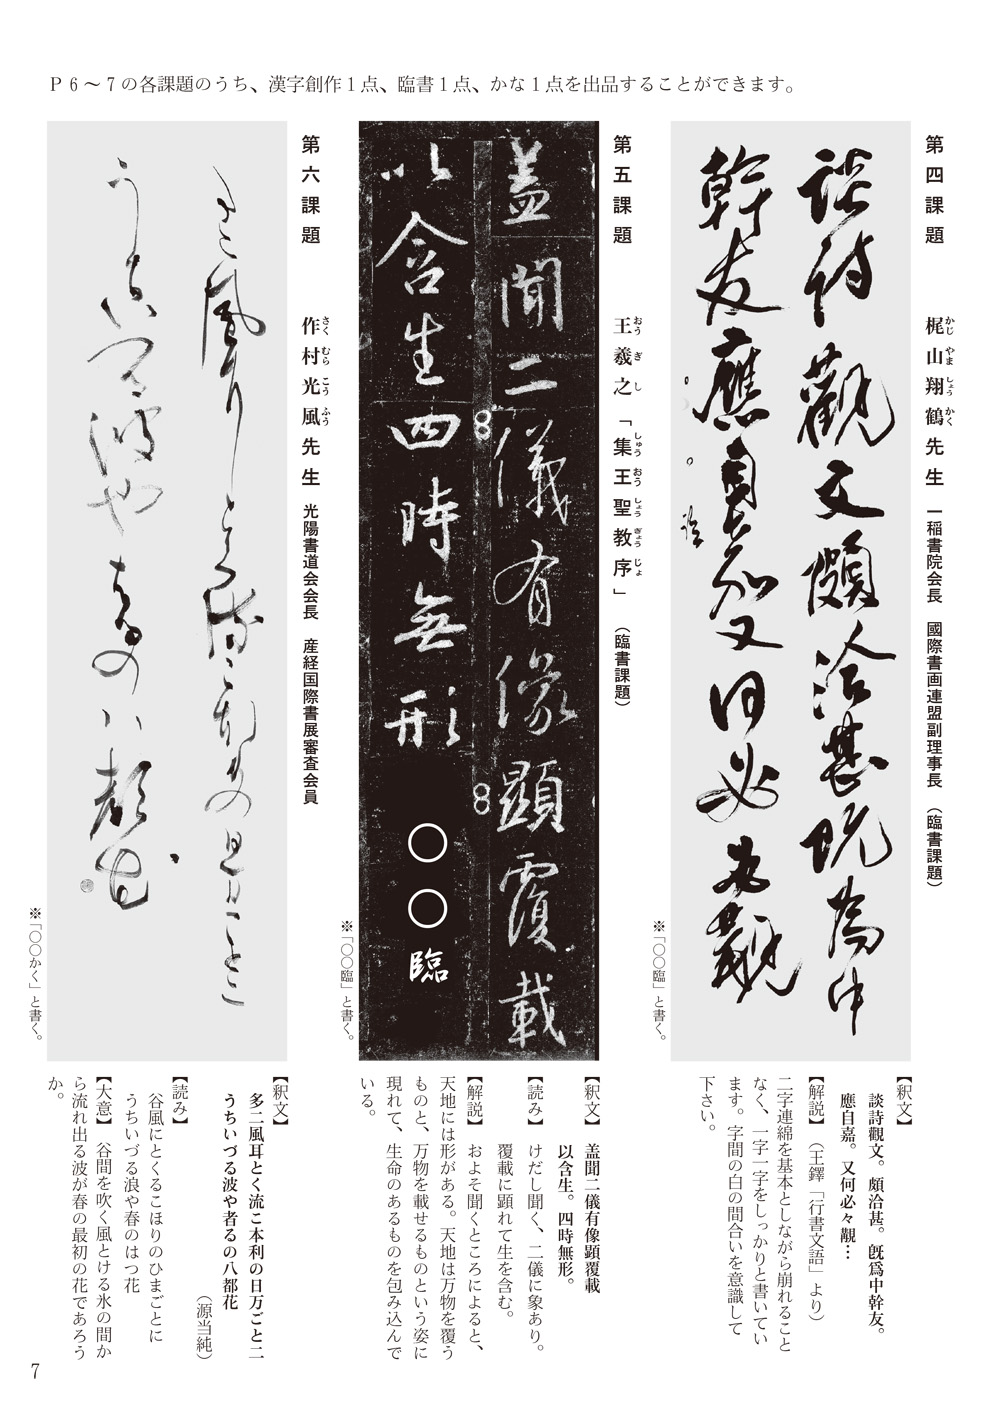 Ｐ６～７の各課題のうち、漢字創作１点、臨書１点、かな１点を出品することができます。
第四課題　梶山翔鶴先生　一稲書院会長　國際書画連盟副理事長　（臨書課題）
かじやましょうかく
談詩觀文頗洽甚既為中
幹友應自嘉又何必々觀
※「〇〇臨」と書く。
【釈文】
談詩觀文。頗洽甚。既爲中幹友。
應自嘉。又何必々觀…
【解説】（王鐸「行書文語」より）
二字連綿を基本としながら崩れること
なく、一字一字をしっかりと書いてい
ます。字間の白の間合いを意識して
下さい。
第五課題　王羲之「集王聖教序」　（臨書課題）
おうぎし　しゅうおうしょうぎょうじょ
盖聞二儀有像顯覆載
以含生四時無形　〇〇臨
※「〇〇臨」と書く。
【釈文】　盖聞二儀有像顕覆載
以含生。四時無形。
【読み】　けだし聞く、二儀に象あり。
覆載に顕れて生を含む。
【解説】　およそ聞くところによると、
天地には形がある。天地は万物を覆う
ものと、万物を載せるものという姿に
現れて、生命のあるものを包み込んで
いる。
第六課題　作村光風先生　光陽書道会会長　産経国際書展審査会員
さくむらこうふう
多二風耳とく流こ本利の日万ごと二
うちいづる波や者るの八都花
※「〇〇かく」と書く。
【釈文】
多二風耳とく流こ本利の日万ごと二
うちいづる波や者るの八都花
（源当純）
【読み】
谷風にとくるこほりのひまごとに
うちいづる浪や春のはつ花
【大意】　谷間を吹く風とける氷の間か
ら流れ出る波が春の最初の花であろう
か。
7